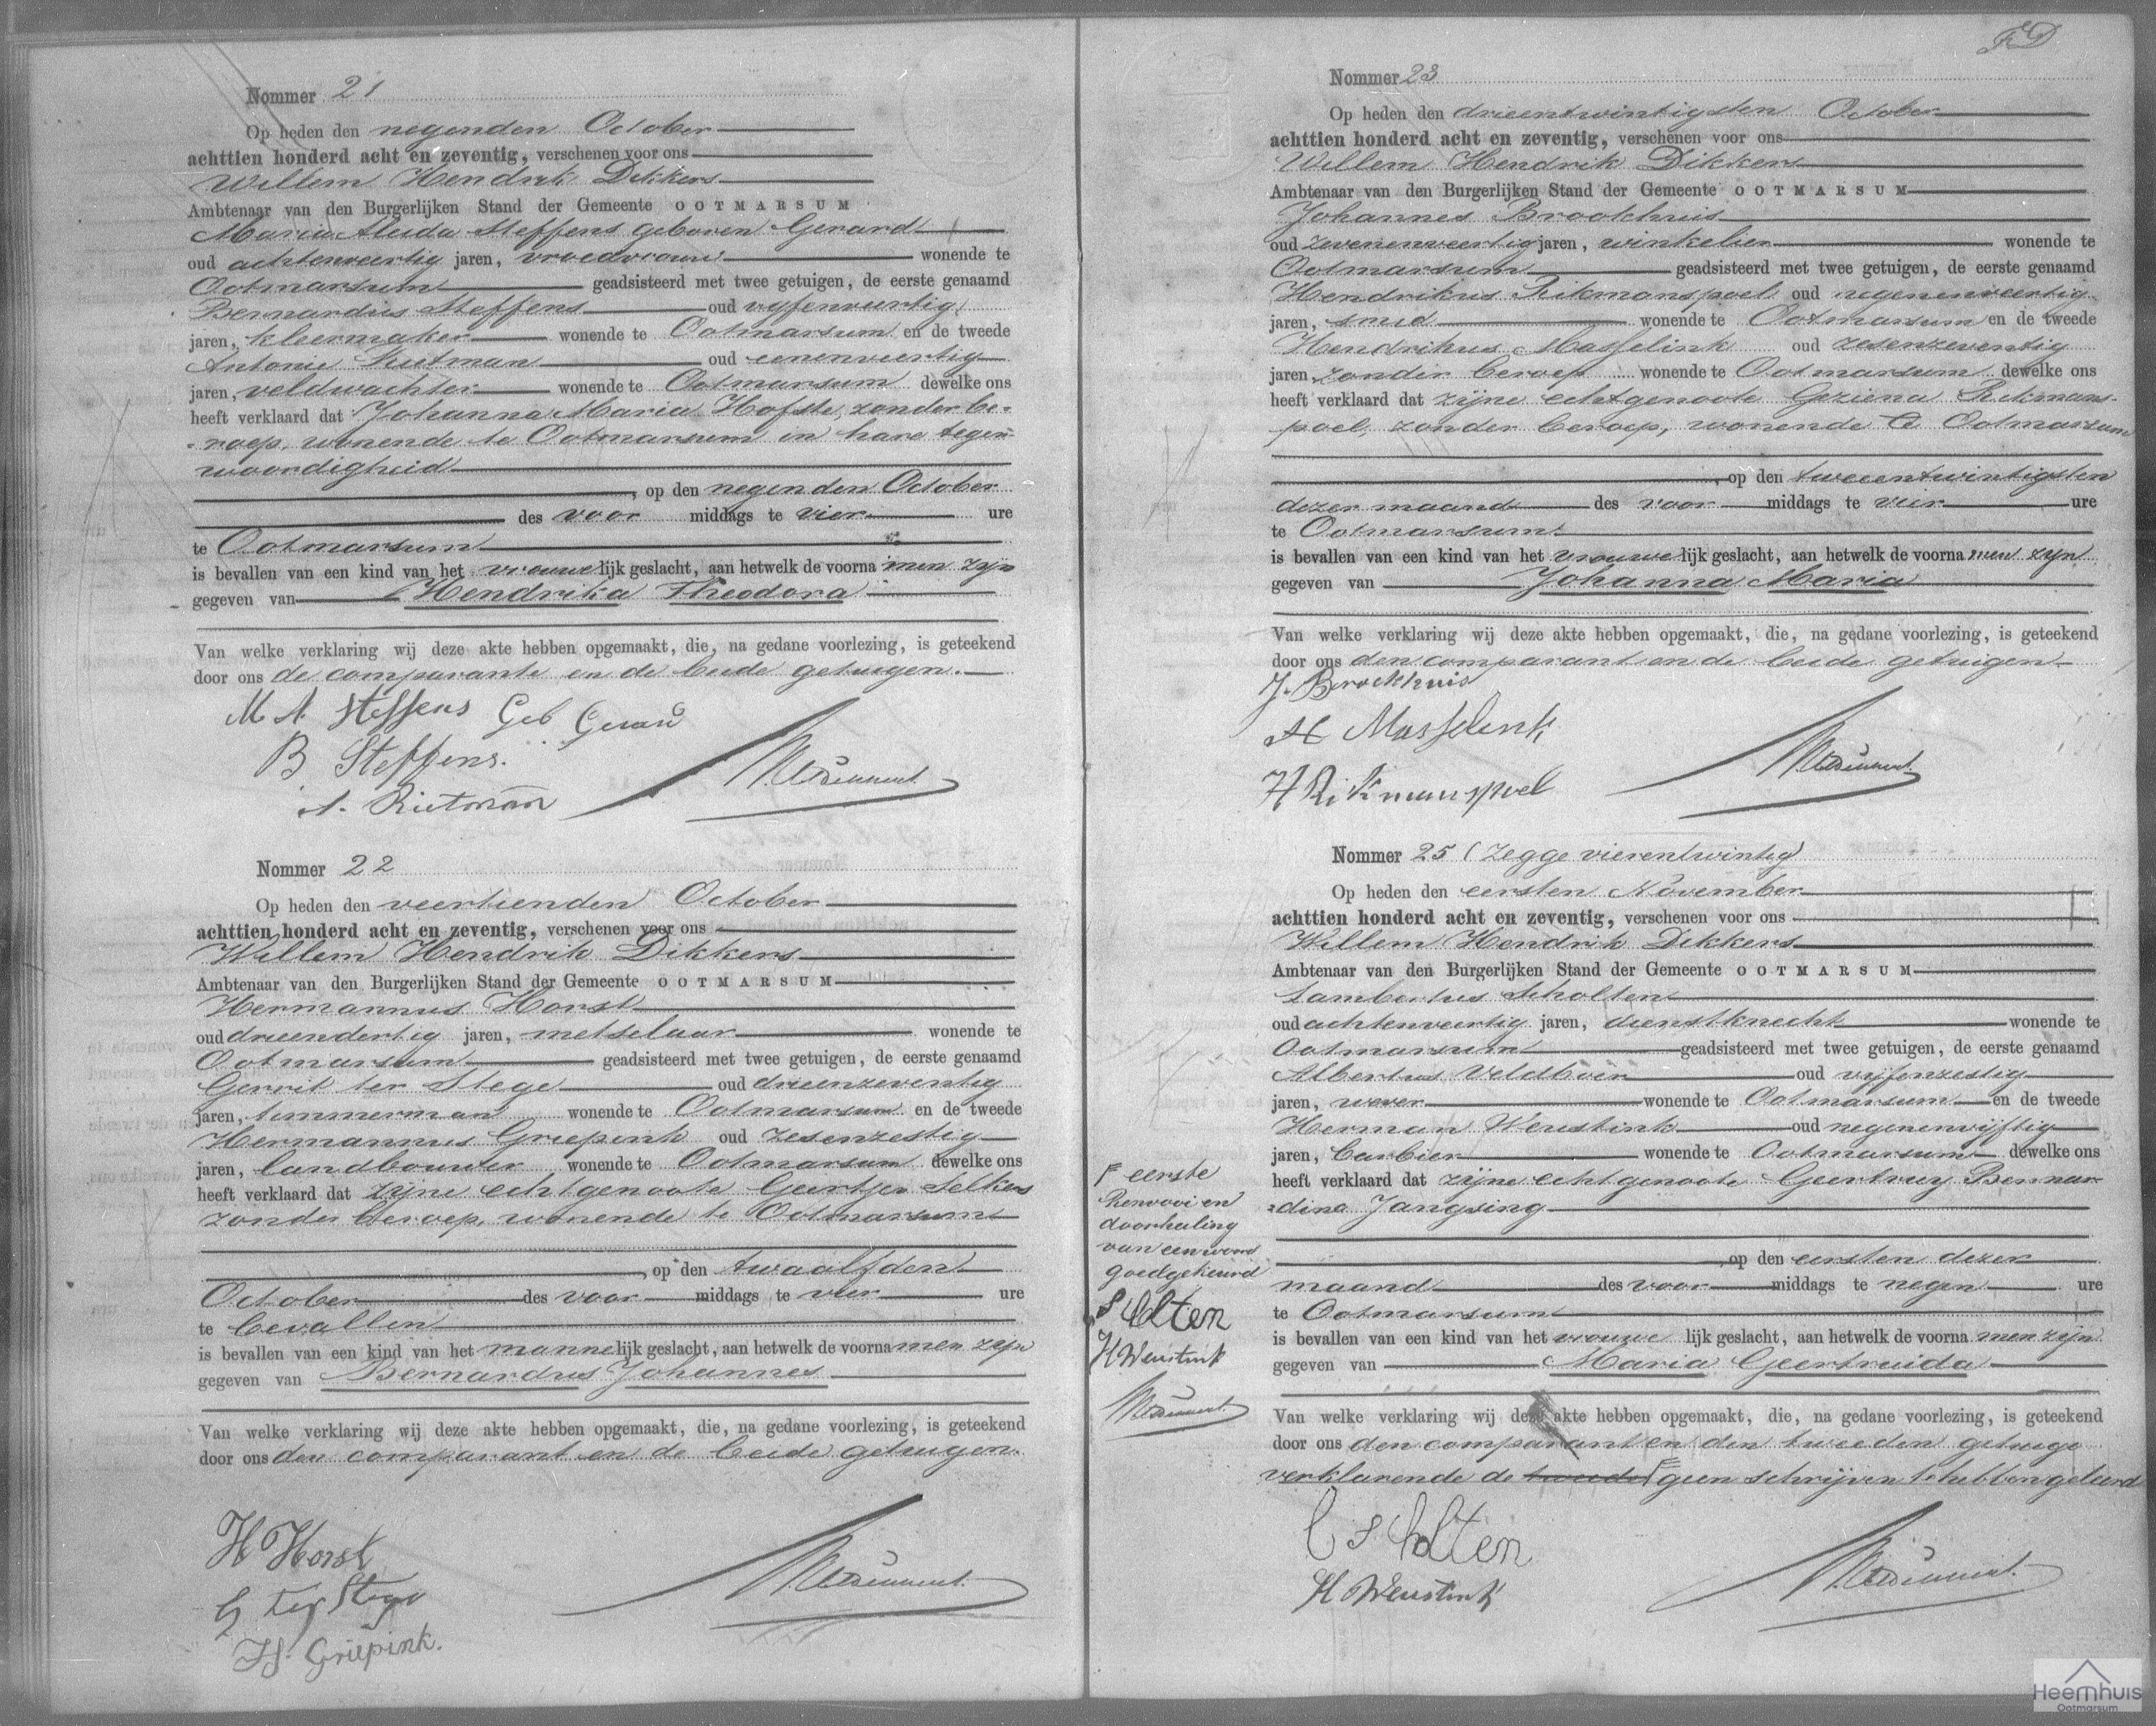 Nommer 21
Op heden den negenden October
achttien honderd acht en zeventig, verschenen voor ons
Willem Hendrik Dikkers
Ambtenaar van den Burgerlijken Stand der Gemeente OOTMARSUM
Maria Aleida Steffens geboren Gerard
oud achtenveertig jaren, vroedvrouw wonende te
Ootmarsum geadsisteerd met twee getuigen, de eerste genaamd
Bernardus Steffens oud vyfenveertig
jaren, kleermaker wonende te Ootmarsum en de tweede
Antonie Rietman oud eenenveertig
jaren, veldwachter wonende te Ootmarsum dewelke ons
heeft verklaard dat Johanna Maria Hofste, zonder be-
-roep, wonende te Ootmarsum in hare tegen-
woordigheid
, op den negenden October
des voor middags te vier ure
te Ootmarsum
is bevallen van een kind van het vrouwelijk geslacht, aan hetwelk de voornamen zyn
gegeven van Hendrika Theodora
Van welke verklaring wij deze akte hebben opgemaakt, die, na gedane voorlezing, is geteekend
door ons de comparante en de beide getuigen.
M A Steffens Geb Gerard
B Steffens.
A. Rietman
Nommer 22
Op heden den veertienden October
achttien honderd acht en zeventig, verschenen voor ons
Willem Hendrik Dikkers
Ambtenaar van den Burgerlijken Stand der Gemeente OOTMARSUM
Hermannus Horst
oud drieendertig jaren, metselaar wonende te
Ootmarsum geadsisteerd met twee getuigen, de eerste genaamd
Gerrit ter Stege oud drieenzeventig
jaren, timmerman wonende te Ootmarsum en de tweede
Hermannus Griepink oud zesenzestig
jaren, landbouwer wonende te Ootmarsum dewelke ons
heeft verklaard dat zijne echtgenoote Geertjen Selkers
zonder beroep, wonende te Ootmarsum
, op den twaalfden
October des voor middags te vier ure
te bevallen
is bevallen van een kind van het mannelijk geslacht, aan hetwelk de voornamen zyn
gegeven van Bernardus Johannes
Van welke verklaring wij deze akte hebben opgemaakt, die, na gedane voorlezing, is geteekend
door ons den comparant en de beide getuigen.
H Horst
G ter Stege
H. Griepink.
Nommer 23
Op heden den drieentwintigsten October
achttien honderd acht en zeventig, verschenen voor ons
Willem Hendrik Dikkers
Ambtenaar van den Burgerlijken Stand der Gemeente OOTMARSUM
Johannes Brookhuis
oud zevenenveertig jaren, winkelier wonende te
Ootmarsum geadsisteerd met twee getuigen, de eerste genaamd
Hendrikus Rikmanspoel oud negenenveertig
jaren, smid wonende te Ootmarsum en de tweede
Hendrikus Masselink oud zesenzeventig
jaren, zonder beroep wonende te Ootmarsum dewelke ons
heeft verklaard dat zijne echtgenoote Geziena Rikmans-
poel, zonder beroep, wonende te Ootmarsum
, op den tweeentwintigsten
dezer maand des voor middags te vier ure
te Ootmarsum
is bevallen van een kind van het vrouwelijk geslacht, aan hetwelk de voornamen zyn
gegeven van Johanna Maria
Van welke verklaring wij deze akte hebben opgemaakt, die, na gedane voorlezing, is geteekend
door ons den comparant en de beide getuigen
J. Brockhuis
H Masselink
H Rikmanspoel
Nommer 25 (zegge vierentwintig)
Op heden den eersten November
achttien honderd acht en zeventig, verschenen voor ons
Willem Hendrik Dikkers
Ambtenaar van den Burgerlijken Stand der Gemeente OOTMARSUM
Lambertus Scholten
oud achtenveertig jaren, dienstknecht wonende te
Ootmarsum geadsisteerd met twee getuigen, de eerste genaamd
Albertus Veldboer oud vijfenzestig
jaren, wever wonende te Ootmarsum en de tweede
Herman Weustink oud negenenvijftig
jaren, barbier wonende te Ootmarsum dewelke ons
heeft verklaard dat zijne echtgenoote Geertruy Bernar-
-dina Jangsing
, op den eersten dezer
maand des voor middags te negen ure
te Ootmarsum
is bevallen van een kind van het vrouwelijk geslacht, aan hetwelk de voornamen zijn
gegeven van Maria Geertruida
Van welke verklaring wij deze akte hebben opgemaakt, die, na gedane voorlezing, is geteekend
door ons den comparant en den tweeden getuige
verklarende de tweede geen schrijven te hebben geleerd
eerste
Renvooi en
doorhaling
van een woord
goedgekeurd
Scholten
H Weustink
L Scholten
H Weustink
Heemhuis
Ootmarsum